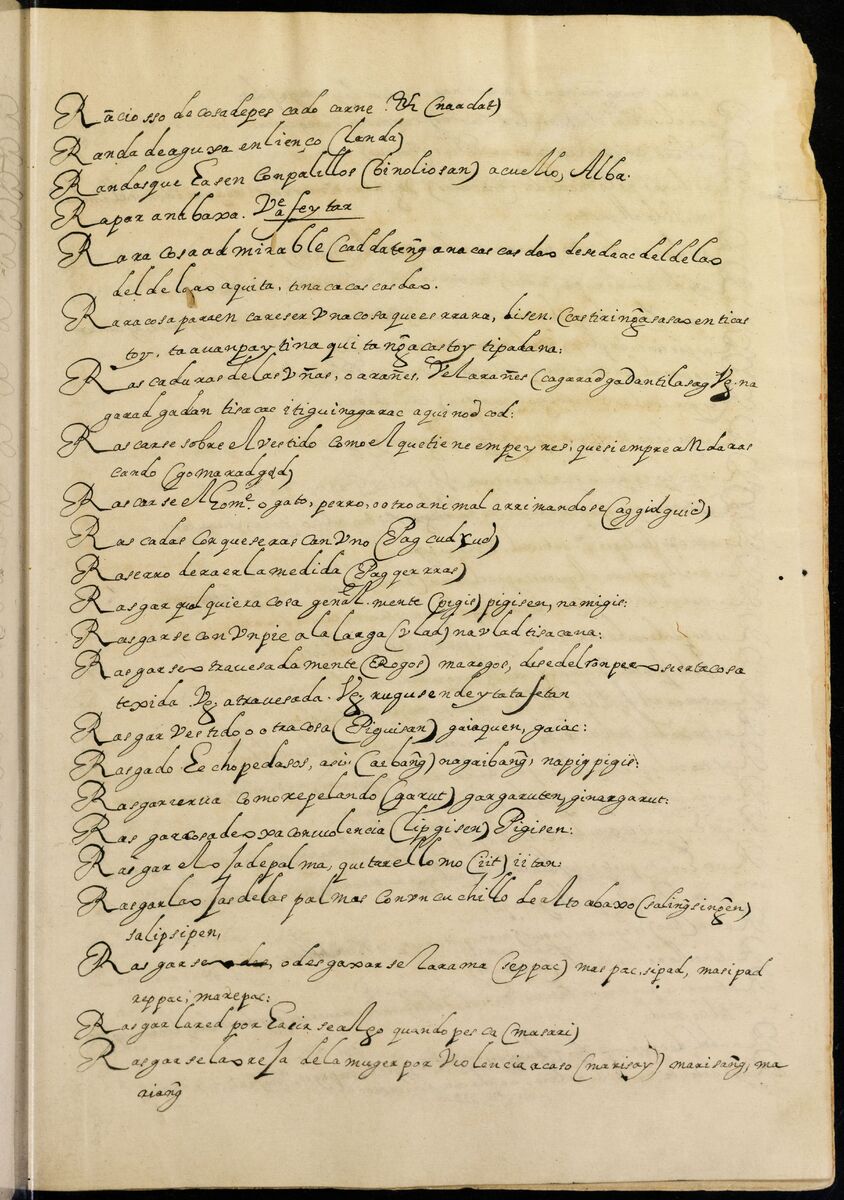 Rãciosso de cosa de pescado carne. Vt (naadat)
Randa de aguxa en lienço (landa)
Randas que Easen Con palillos (binoliosan) a cuello, Alba.
Rapar a nabaxa. Ve afeytar
Rara cosa admirable (caddateng̃ anacascasdao desedaac deldelao
deldelao aquita, tinacacascasdao.
Rara cosa para en careser Vna cosa que es rrara, disen. (castiring̃asasao enticas
toy, ta auan pay tina quitang̃a castoy tipadana:
Rascaduras de las Vñas, o arañes, Vel arañes (cagaradgadan tilasag Vg. na
garadgadan tisacac itiguinagarac aquinodcod:
Rascarse sobre el Vestido como el que tiene empeyres, que siempre anda ras
cando (gomaradgad)
Rascarse el Home. o gato, perro, o otro animal arrimandose (aggidguid)
Rascadas Con que se ras can Vno (Pag cudxud)
Raserro de raer la medida (Pag gerrras)
Rasgar qualquiera cosa general.mente (pigis) pigisen, namigis:
Rasgarse con Vn pie a la larga (Vlad) na Vlad tisacana:
Rasgarse atravesadamente (Rogos) marogos, disedel romper o sierta cosa
texida. Vg. atravesada. Vg. rugusen deytatafetan
Rasgar Vestido o otra cosa (Piguisan) gaiaquen, gaiac:
Rasgado Eecho pedasos, asi. (Caibang̃) nagaibang̃, napigpigis:
Rasgar ierua como repelando (garut) gargaruten, ginargarut:
Rasgar cosa de oxa con uiolencia (lipgisen) Pigisen:
Rasgar el oja de palma, quitar el lomo (iit) iitan:
Rasgar las ojas de las palmas con vn cuchillo de alto abaxo (saling̃sing̃en)
salipsipen,
Rasgarse o desgaxarse la rama (seppac) maspac, sipad, masipad
reppac, marepac:
Rasgar la red por Easirse algo quando pesca (masari)
Rasgarse la oreja de la muger por Violencia acaso (marisay) marisang̃, ma
riang̃